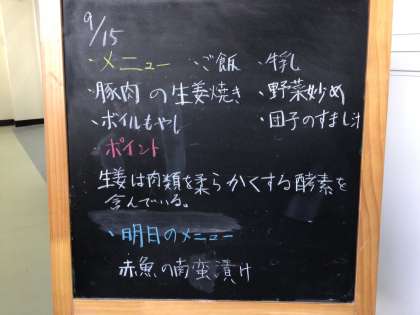 9/15
・メニュー ・ご飯 ・牛乳
・豚肉の生姜焼き ・野菜炒め
・ボイルもやし ・団子のすまし汁
・ポイント
生姜は肉類を柔らかくする酵素を
含んでいる。
・明日のメニュー
赤魚の南蛮漬け